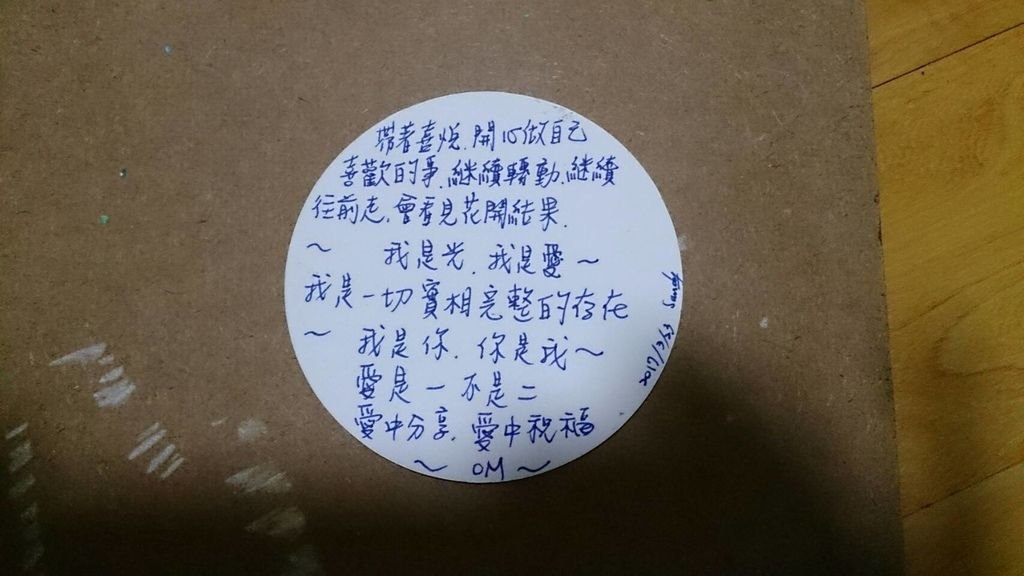 帶著喜悅.開心做自己
喜歡的事.継續轉動.継續
往前走.會看見花開結果.
～ 我是光.我是愛～
我是一切實相完整的存在
～ 我是你.你是我～
愛是一不是二
愛中分享.愛中祝福
～OM～